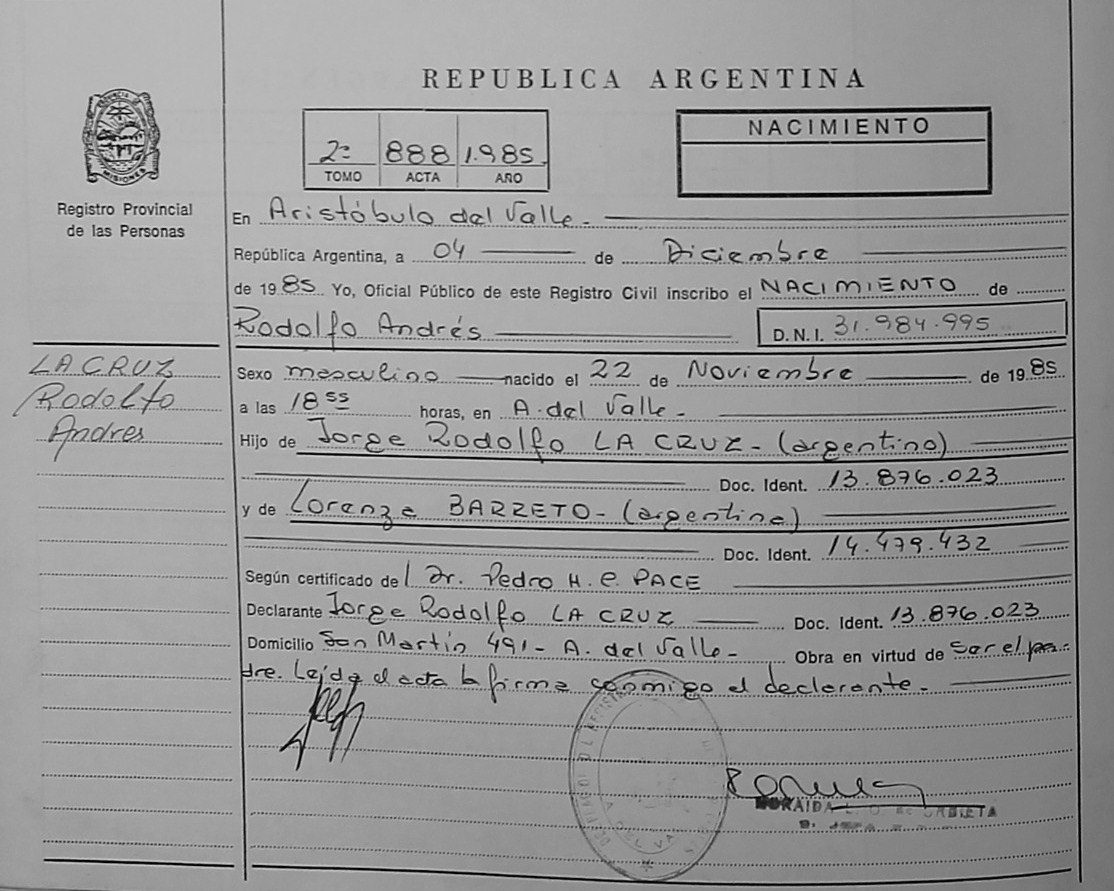 REPUBLICA ARGENTINA
MISIONES
Registro Provincial
de las Personas
2º 888 1.985.
TOMO ACTA AÑO
NACIMIENTO
En Aristóbulo del Valle.-
República Argentina, a 04 de Diciembre
de 1985 Yo, Oficial Público de este Registro Civil inscribo el NACIMIENTO de
Rodolfo Andrés D.N.I. 31.984.995
LA CRUZ
Rodolfo
Andres
Sexo masculino nacido el 22 de Noviembre de 1985
a las 18 55 horas, en A. del Valle.-
Hijo de Jorge Rodolfo LA CRUZ.- (argentino)
Doc. Ident. 13.876.023
y de Lorenza BARRETO- (argentina)
Doc. Ident. 14.479.432
Según certificado del Dr. Pedro H. C. PACE
Declarante Jorge Rodolfo LA CRUZ Doc. Ident. 13.876.023
Domicilio San Martín 491- A. del Valle.- Obra en virtud de ser el pa-
dre. Leída el acta la firma conmigo el declarante.-